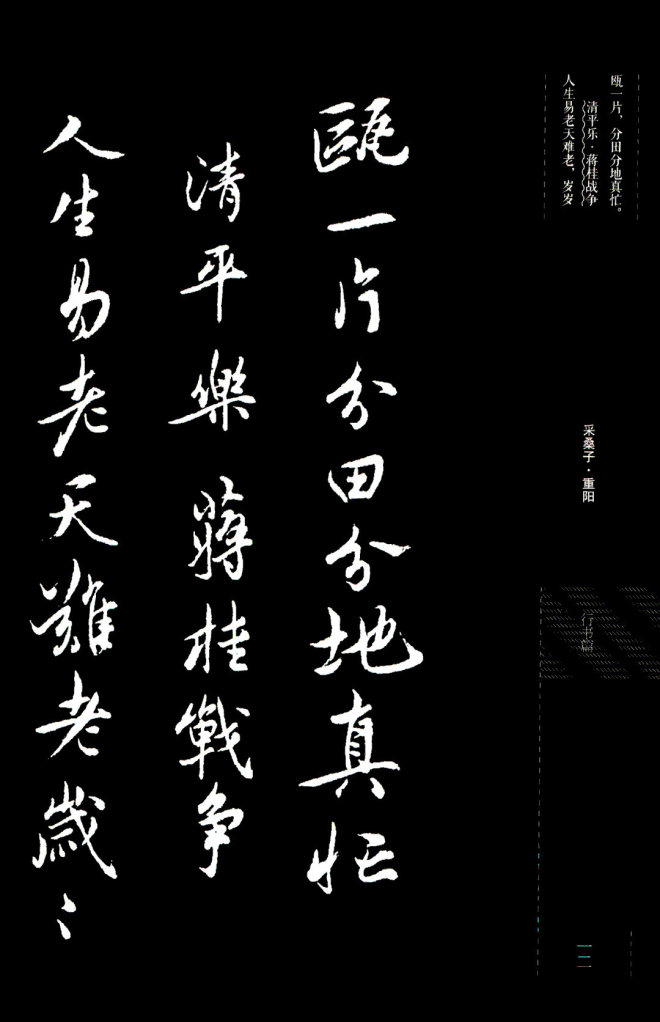 瓯一片，分田分地真忙。
清平乐·蒋桂战争
人生易老天难老，岁岁
采桑子·重阳
行书篇
一二
瓯一片分田分地真忙
清平樂 蔣桂戰争
人生易老天難老歲〻